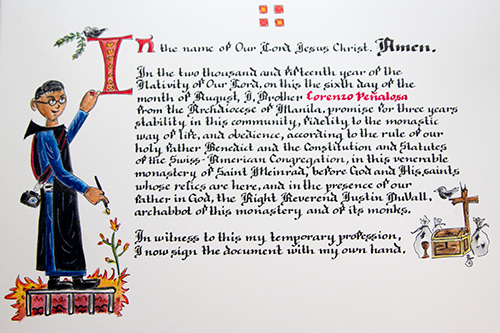 In the name of Our Lord Jesus Christ. Amen.
In the two thousand and fifteenth year of the
Nativity of Our Lord, on this the sixth day of the
month of August, I, Brother Lorenzo Peñalosa
from the Archdiocese of Manila, promise for three years
stability in this community, fidelity to the monastic
way of life, and obedience, according to the rule of our
holy Father Benedict and the Constitution and Statutes
of the Swiss-American Congregation, in this venerable
monastery of Saint Meinrad, before God and His saints
whose relics are here, and in the presence of our
father in God, the Right Reverend Justin DuVall,
archabbot of this monastery and of its monks.
In witness to this my temporary profession,
I now sign the document with my own hand.